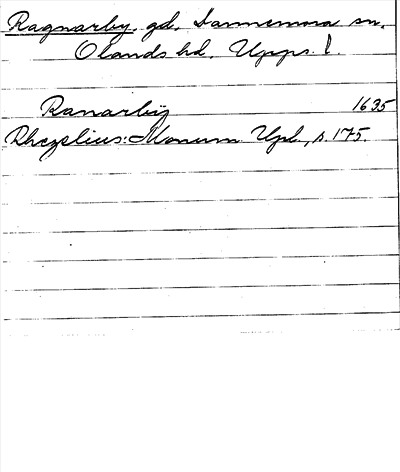 Ragnarby, gd, Dannemora sn,
Olands hd, Upps. l.
Ranarbÿ 1635
Rhezelius: Monum Upl, s. 175.